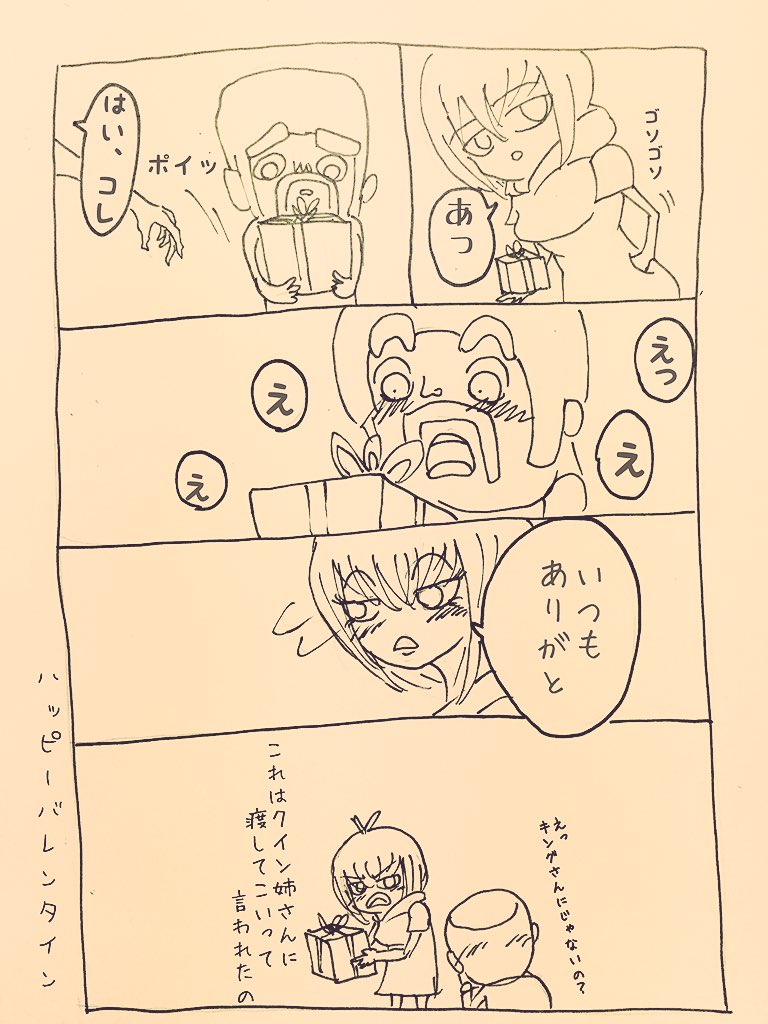 ゴソゴソ
あっ
ポイッ
はい、コレ
えっ
え
え
え
いつも
ありがと
えっ
キングさんにじゃないの?
これはクイン姉さんに
渡してこいって
言われたの
ハッピーバレンタイン